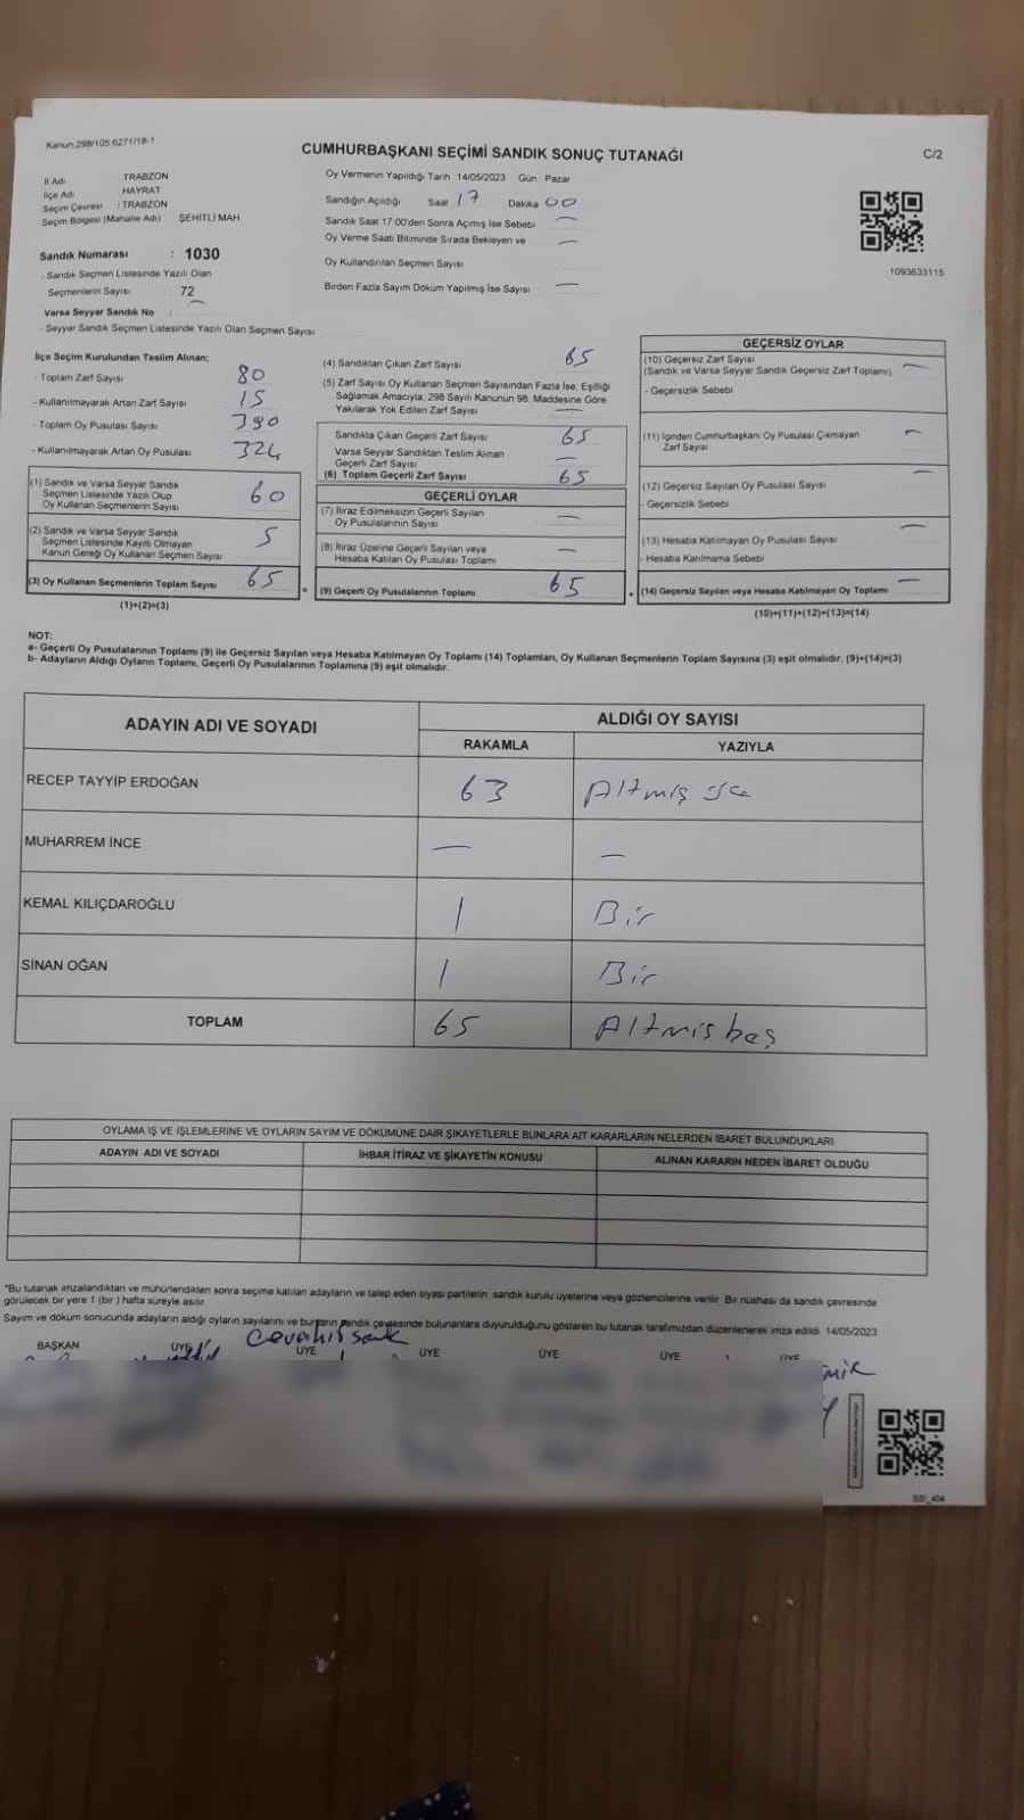 Kanun 298/105 6271/18-1
CUMHURBAŞKANI SEÇİMİ SANDIK SONUÇ TUTANAĞI
C/2
İl Adı : TRABZON
İlçe Adı HAYRAT
Seçim Çevresi : TRABZON
Seçim Bölgesi (Mahalle Adı) ŞEHİTLİ MAH
Sandık Numarası : 1030
- Sandık Seçmen Listesinde Yazılı Olan
Seçmenlerin Sayısı 72
Varsa Seyyar Sandık No :
- Seyyar Sandık Seçmen Listesinde Yazılı Olan Seçmen Sayısı
Oy Vermenin Yapıldığı Tarih 14/05/2023 Gün : Pazar
Sandığın Açıldığı Saat 17 Dakika 00
Sandık Saat 17.00'den Sonra Açımış İse Sebebi —
Oy Verme Saati Bitiminde Sırada Bekleyen ve —
Oy Kullandırılan Seçmen Sayısı
Birden Fazla Sayım Döküm Yapılmış İse Sayısı —
1093633115
İlçe Seçim Kurulundan Teslim Alınan;
- Toplam Zarf Sayısı 80
- Kullanılmayarak Artan Zarf Sayısı 15
- Toplam Oy Pusulası Sayısı 390
- Kullanılmayarak Artan Oy Pusulası 324
(1) Sandık ve Varsa Seyyar Sandık
Seçmen Listesinde Yazılı Olup
Oy Kullanan Seçmenlerin Sayısı 60
(2) Sandık ve Varsa Seyyar Sandık
Seçmen Listesinde Kayıtlı Olmayan
Kanun Gereği Oy Kullanan Seçmen Sayısı 5
(3) Oy Kullanan Seçmenlerin Toplam Sayısı 65
(1)+(2)=(3)
(4) Sandıktan Çıkan Zarf Sayısı 65
(5) Zarf Sayısı Oy Kullanan Seçmen Sayısından Fazla İse, Eşitliği
Sağlamak Amacıyla, 298 Sayılı Kanunun 98. Maddesine Göre
Yakılarak Yok Edilen Zarf Sayısı —
Sandıkta Çıkan Geçerli Zarf Sayısı 65
Varsa Seyyar Sandıktan Teslim Alınan
Geçerli Zarf Sayısı —
(6) Toplam Geçerli Zarf Sayısı 65
GEÇERLİ OYLAR
(7) İtiraz Edilmeksizin Geçerli Sayılan
Oy Pusulalarının Sayısı —
(8) İtiraz Üzerine Geçerli Sayılan veya
Hesaba Katılan Oy Pusulası Toplamı —
(9) Geçerli Oy Pusulalarının Toplamı 65
GEÇERSİZ OYLAR
(10) Geçersiz Zarf Sayısı
(Sandık ve Varsa Seyyar Sandık Geçersiz Zarf Toplamı) —
- Geçersizlik Sebebi
(11) İçinden Cumhurbaşkanı Oy Pusulası Çıkmayan
Zarf Sayısı —
(12) Geçersiz Sayılan Oy Pusulası Sayısı —
- Geçersizlik Sebebi
(13) Hesaba Katılmayan Oy Pusulası Sayısı —
- Hesaba Katılmama Sebebi
(14) Geçersiz Sayılan veya Hesaba Katılmayan Oy Toplamı —
(10)+(11)+(12)+(13)=(14)
NOT:
a- Geçerli Oy Pusulalarının Toplamı (9) ile Geçersiz Sayılan veya Hesaba Katılmayan Oy Toplamı (14) Toplamları, Oy Kullanan Seçmenlerin Toplam Sayısına (3) eşit olmalıdır. (9)+(14)=(3)
b- Adayların Aldığı Oyların Toplamı, Geçerli Oy Pusulalarının Toplamına (9) eşit olmalıdır.
ADAYIN ADI VE SOYADI
ALDIĞI OY SAYISI
RAKAMLA YAZIYLA
RECEP TAYYİP ERDOĞAN 63 Altmış üç
MUHARREM İNCE — —
KEMAL KILIÇDAROĞLU 1 Bir
SİNAN OĞAN 1 Bir
TOPLAM 65 Altmışbeş
OYLAMA İŞ VE İŞLEMLERİNE VE OYLARIN SAYIM VE DÖKÜMÜNE DAİR ŞİKAYETLERLE BUNLARA AİT KARARLARIN NELERDEN İBARET BULUNDUKLARI
ADAYIN ADI VE SOYADI İHBAR İTİRAZ VE ŞİKAYETİN KONUSU ALINAN KARARIN NEDEN İBARET OLDUĞU
"Bu tutanak imzalandıktan ve mühürlendikten sonra seçime katılan adayların ve talep eden siyasi partilerin sandık kurulu üyelerine veya gözlemcilerine verilir. Bir nüshası da sandık çevresinde
görülecek bir yere 1 (bir ) hafta süreyle asılır
Sayım ve döküm sonucunda adayların aldığı oyların sayılarını ve bunların sandık çevresinde bulunanlara duyurulduğunu gösteren bu tutanak tarafımızdan düzenlenerek imza edildi. 14/05/2023
BAŞKAN ÜYE ÜYE ÜYE ÜYE ÜYE ÜYE